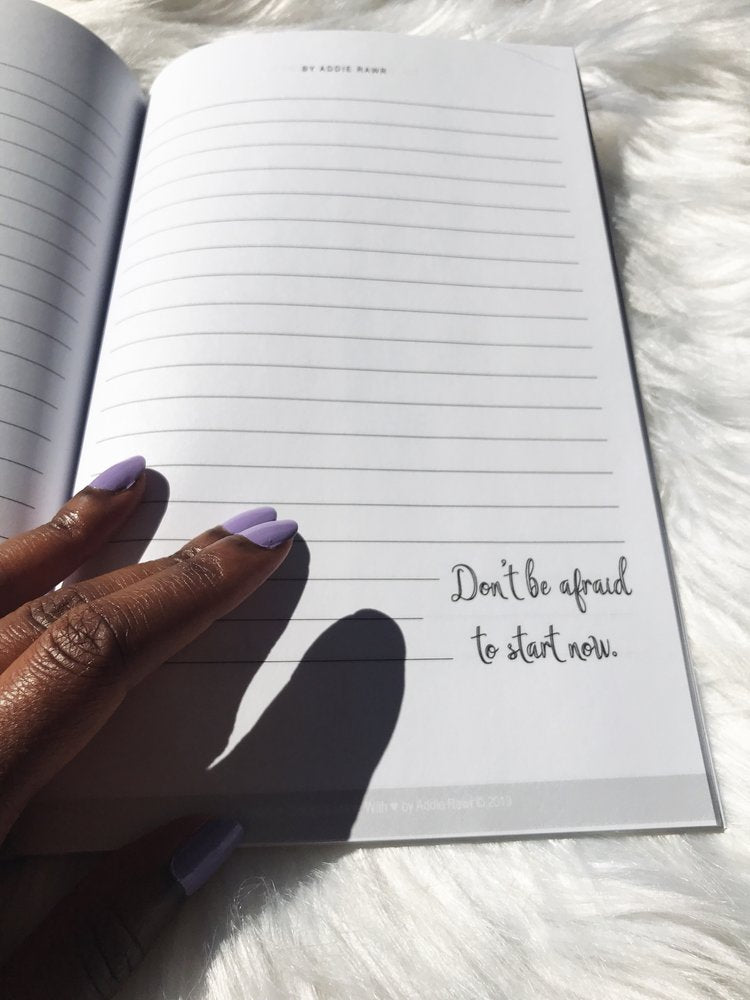 BY ADDIE RAWR
Don't be afraid
to start now.
With ♥ by Addie Rawr © 2019